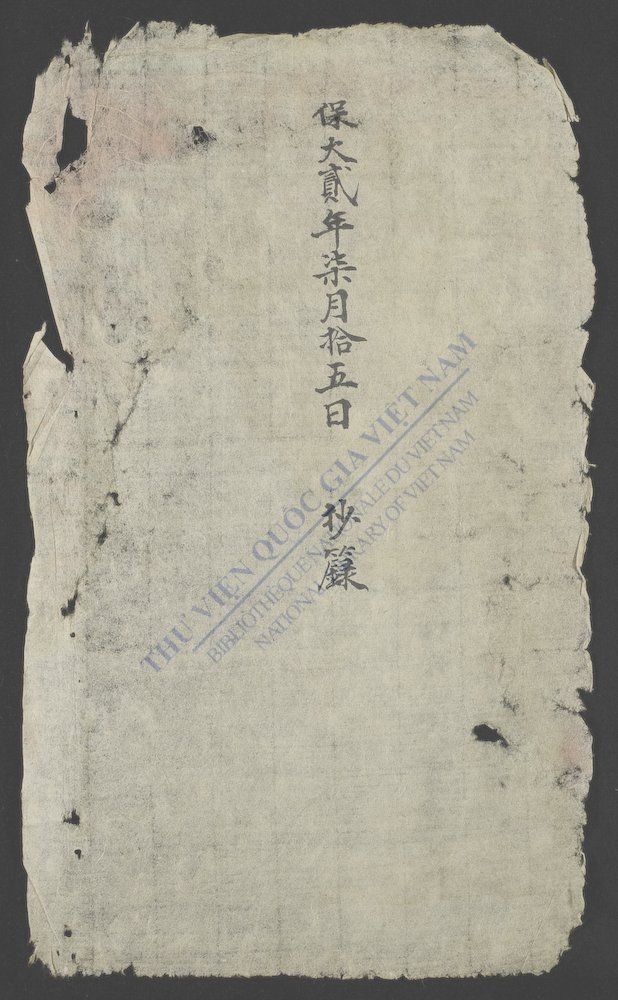 保大貳年柒月拾五日 抄籙
THƯ VIỆN QUỐC GIA VIỆT NAM
BIBLIOTHÈQUE NATIONALE DU VIETNAM
NATIONAL LIBRARY OF VIET NAM